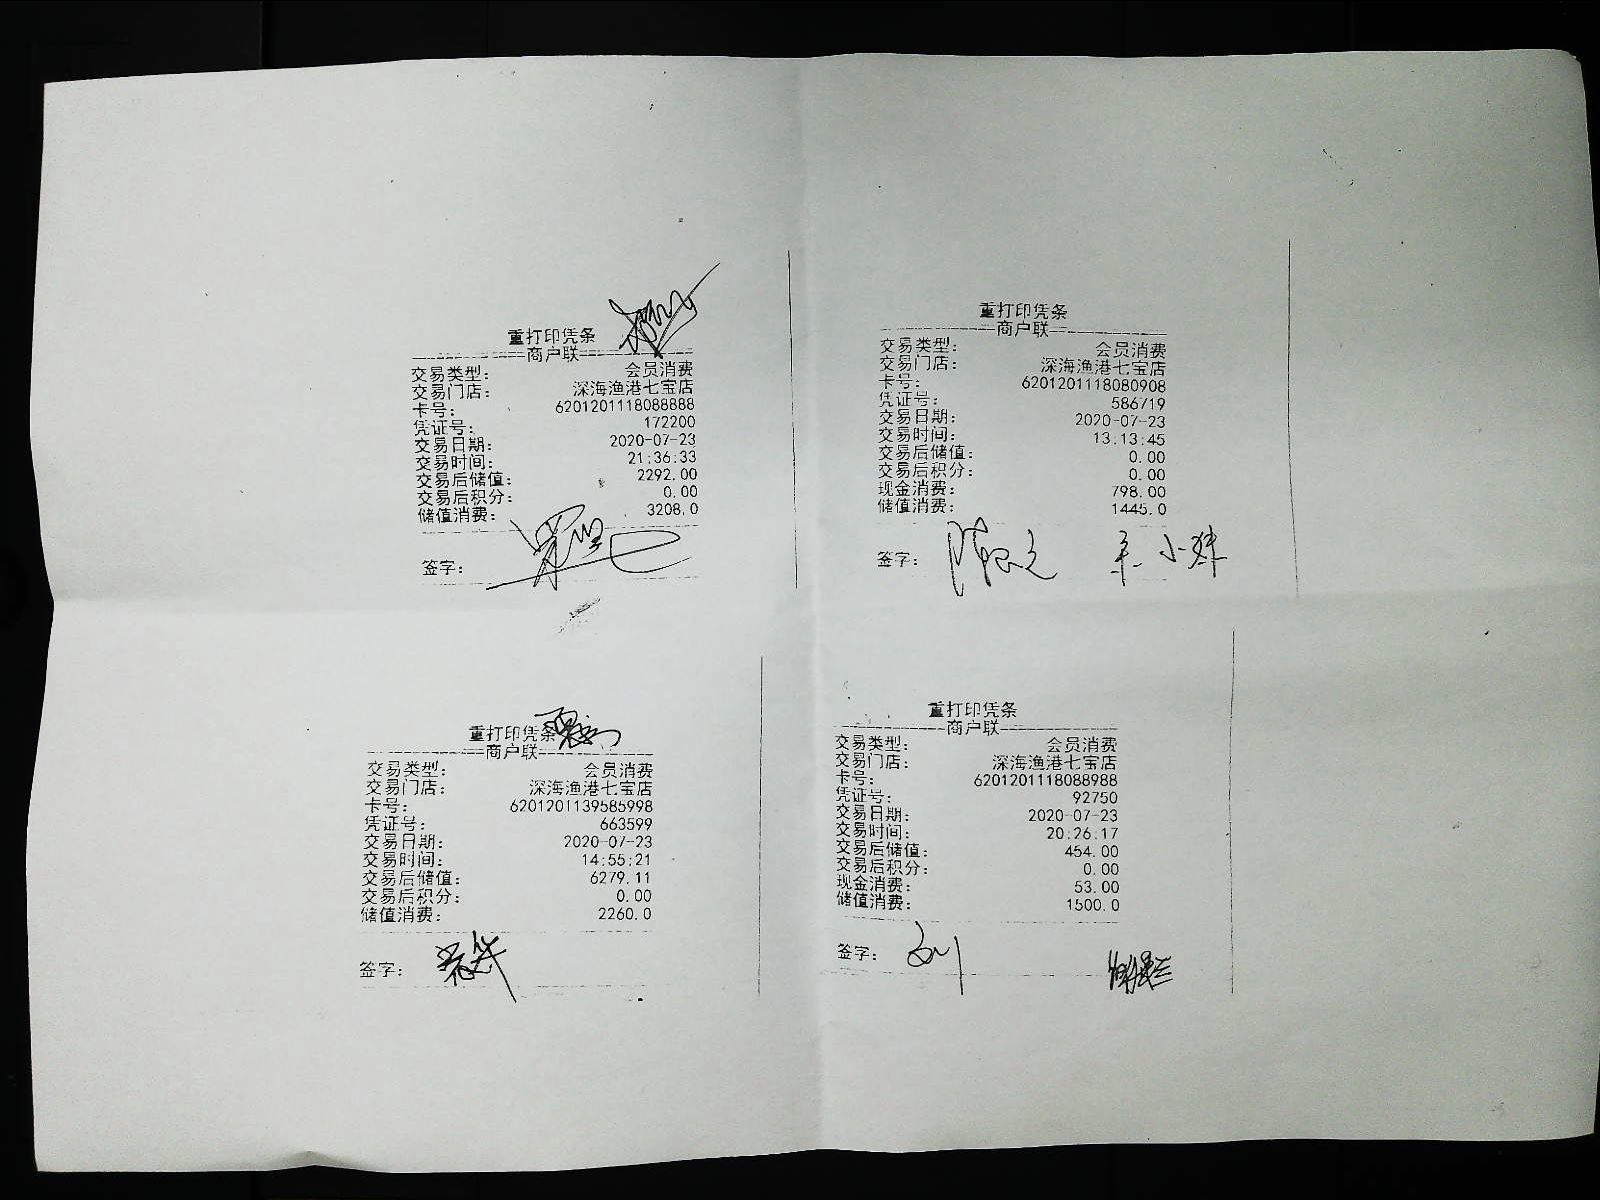 重打印凭条
商户联
交易类型： 会员消费
交易门店： 深海渔港七宝店
卡号： 6201201118088888
凭证号： 172200
交易日期： 2020-07-23
交易时间： 21:36:33
交易后储值： 2292.00
交易后积分： 0.00
储值消费： 3208.0
签字：
重打印凭条
商户联
交易类型： 会员消费
交易门店： 深海渔港七宝店
卡号： 6201201118080908
凭证号： 586719
交易日期： 2020-07-23
交易时间： 13:13:45
交易后储值： 0.00
交易后积分： 0.00
现金消费： 798.00
储值消费： 1445.0
签字：
重打印凭条
商户联
交易类型： 会员消费
交易门店： 深海渔港七宝店
卡号： 6201201139585998
凭证号： 663599
交易日期： 2020-07-23
交易时间： 14:55:21
交易后储值： 6279.11
交易后积分： 0.00
储值消费： 2260.0
签字：
重打印凭条
商户联
交易类型： 会员消费
交易门店： 深海渔港七宝店
卡号： 6201201118088988
凭证号： 92750
交易日期： 2020-07-23
交易时间： 20:26:17
交易后储值： 454.00
交易后积分： 0.00
现金消费： 53.00
储值消费： 1500.0
签字：